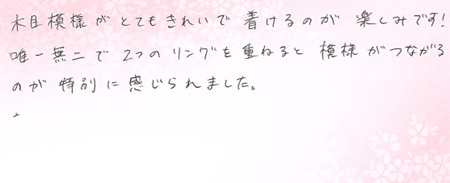 木目模様がとてもきれいで着けるのが楽しみです!
唯一無二で2つのリングを重ねると模様がつながる
のが特別に感じられました。